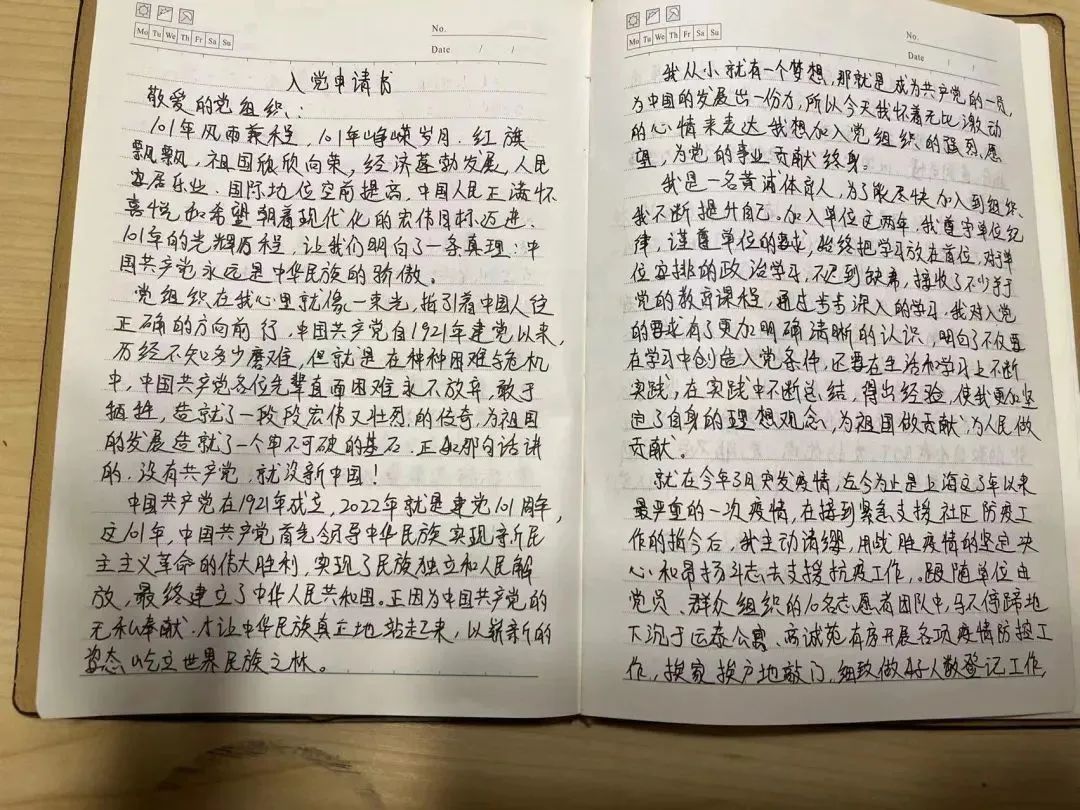 No.
Mo Tu We Th Fr Sa Su
Date / /
入党申请书
敬爱的党组织：
101年风雨兼程，101年峥嵘岁月。红旗
飘飘，祖国欣欣向荣，经济蓬勃发展，人民
安居乐业，国际地位空前提高，中国人民正满怀
喜悦和希望朝着现代化的宏伟目标迈进。
101年的光辉历程，让我们明白了一条真理：中
国共产党永远是中华民族的骄傲。
党组织在我心里就像一束光，指引着中国人往
正确的方向前行，中国共产党自1921年建党以来，
历经不知多少磨难，但就是在种种困难与危机
中，中国共产党各位先辈直面困难永不放弃，敢于
牺牲，造就了一段段宏伟又壮烈的传奇，为祖国
的发展造就了一个牢不可破的基石。正如那句话讲
的，没有共产党，就没新中国！
中国共产党在1921年成立，2022年就是建党101周年，
这101年，中国共产党首先领导中华民族实现新民
主主义革命的伟大胜利，实现了民族独立和人民解
放，最终建立了中华人民共和国。正因为中国共产党的
无私奉献，才让中华民族真正地站起来，以崭新的
姿态屹立世界民族之林。
No.
Mo Tu We Th Fr Sa Su
Date / /
我从小就有一个梦想，那就是成为共产党的一员，
为中国的发展出一份力，所以今天我怀着无比激动
的心情来表达我想加入党组织的强烈愿
望，为党的事业贡献终身。
我是一名黄浦体育人，为了能尽快加入到组织，
我不断提升自己。加入单位这两年，我遵守单位纪
律，谨遵单位的要求，始终把学习放在首位，对于单
位安排的政治学习，不迟到缺席，接收了不少关于
党的教育课程，通过步步深入的学习，我对入党
的要求有了更加明确清晰的认识，明白了不仅要
在学习中创造入党条件，还要在生活和学习上不断
实践，在实践中不断总结，得出经验，使我更加坚
定了自身的理想观念，为祖国做贡献，为人民做
贡献。
就在今年3月突发疫情，迄今为止是上海这3年以来
最严重的一次疫情，在接到紧急支援社区防疫工
作的指令后，我主动请缨，用战胜疫情的坚定决
心和昂扬斗志去支援抗疫工作，跟随单位由
党员、群众组织的10名志愿者团队中，马不停蹄地
下沉于运泰公寓、商诚苑有序开展各项疫情防控工
作，挨家挨户地敲门，细致做好人数登记工作，